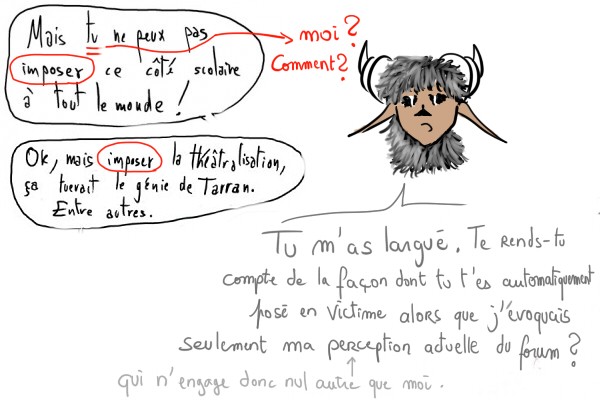 Mais tu ne peux pas
imposer ce côté scolaire
à tout le monde !
moi ?
Comment ?
Ok, mais imposer la théâtralisation,
ça tuerait le génie de Tarran.
Entre autres.
Tu m'as largué. Te rends-tu
compte de la façon dont tu t'es automatiquement
posé en victime alors que j'évoquais
seulement ma perception actuelle du forum ?
qui n'engage donc nul autre que moi.